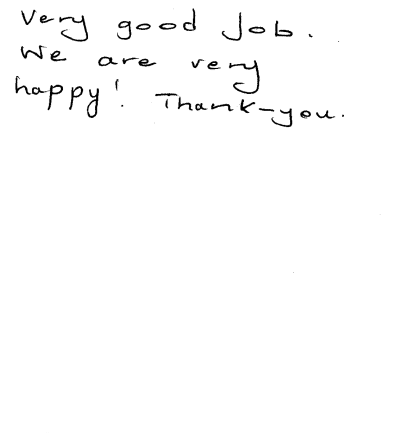 Very good Job.
We are very
happy! Thank-you.